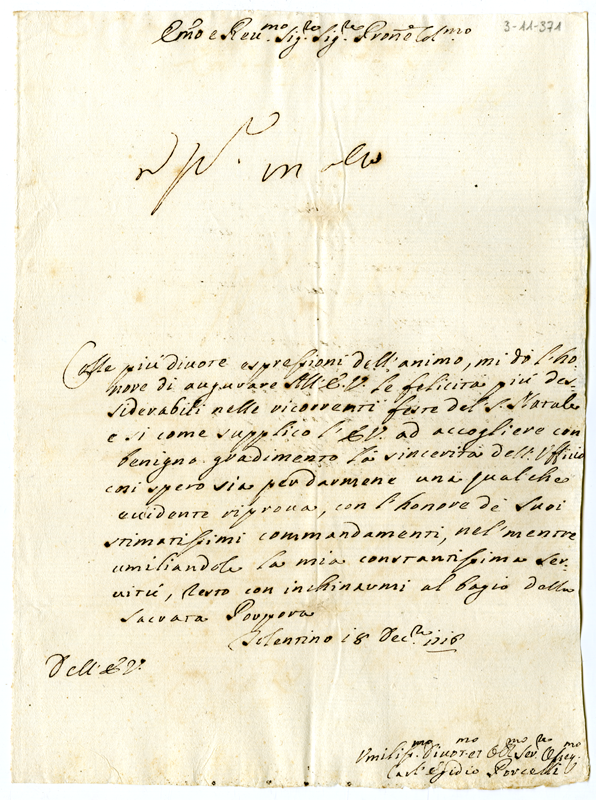 3-11-371
Emo e Reumo Sigre Sigre Prone Colmo
in
Colle più diuote espressioni dell'animo, mi dò l'ho,
nore di augurare All'E.V. le felicità più des-
siderabili nelle ricorrenti feste del S. Natale
e si come supplico l'E.V. ad accogliere con
benigno gradimento la sincerità dell'Vfficio
mi spero sia per darmene una qualche
euidente riproua, con l'honore de suoi
stimatissimi commandamenti, nel'mentre
umiliandole la mia constantissima ser-
uitù, resto con inchinarmi al bagio della
sacrata Porpora
18 Decre 1718
Dell'E.V.
Vmilismo Diuotmo et Obmo Serre Osseqmo
Carl' Egidio Porcelli